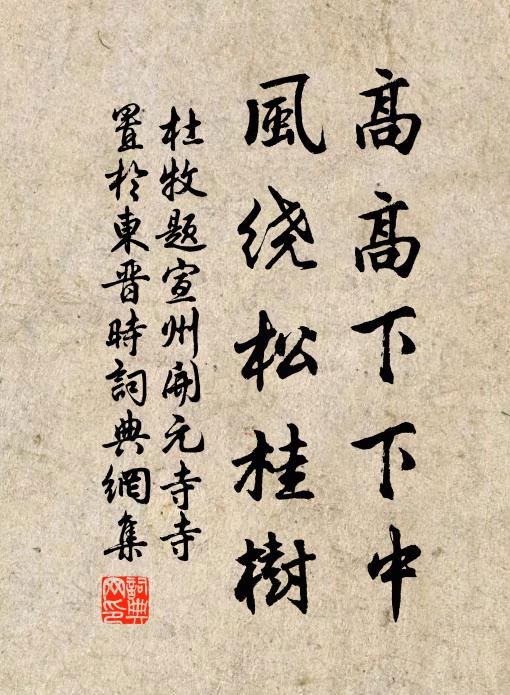 高高下下中
風绕松桂樹
杜牧题宣州開元寺寺
置於東晋時詞典網集
詞典网印